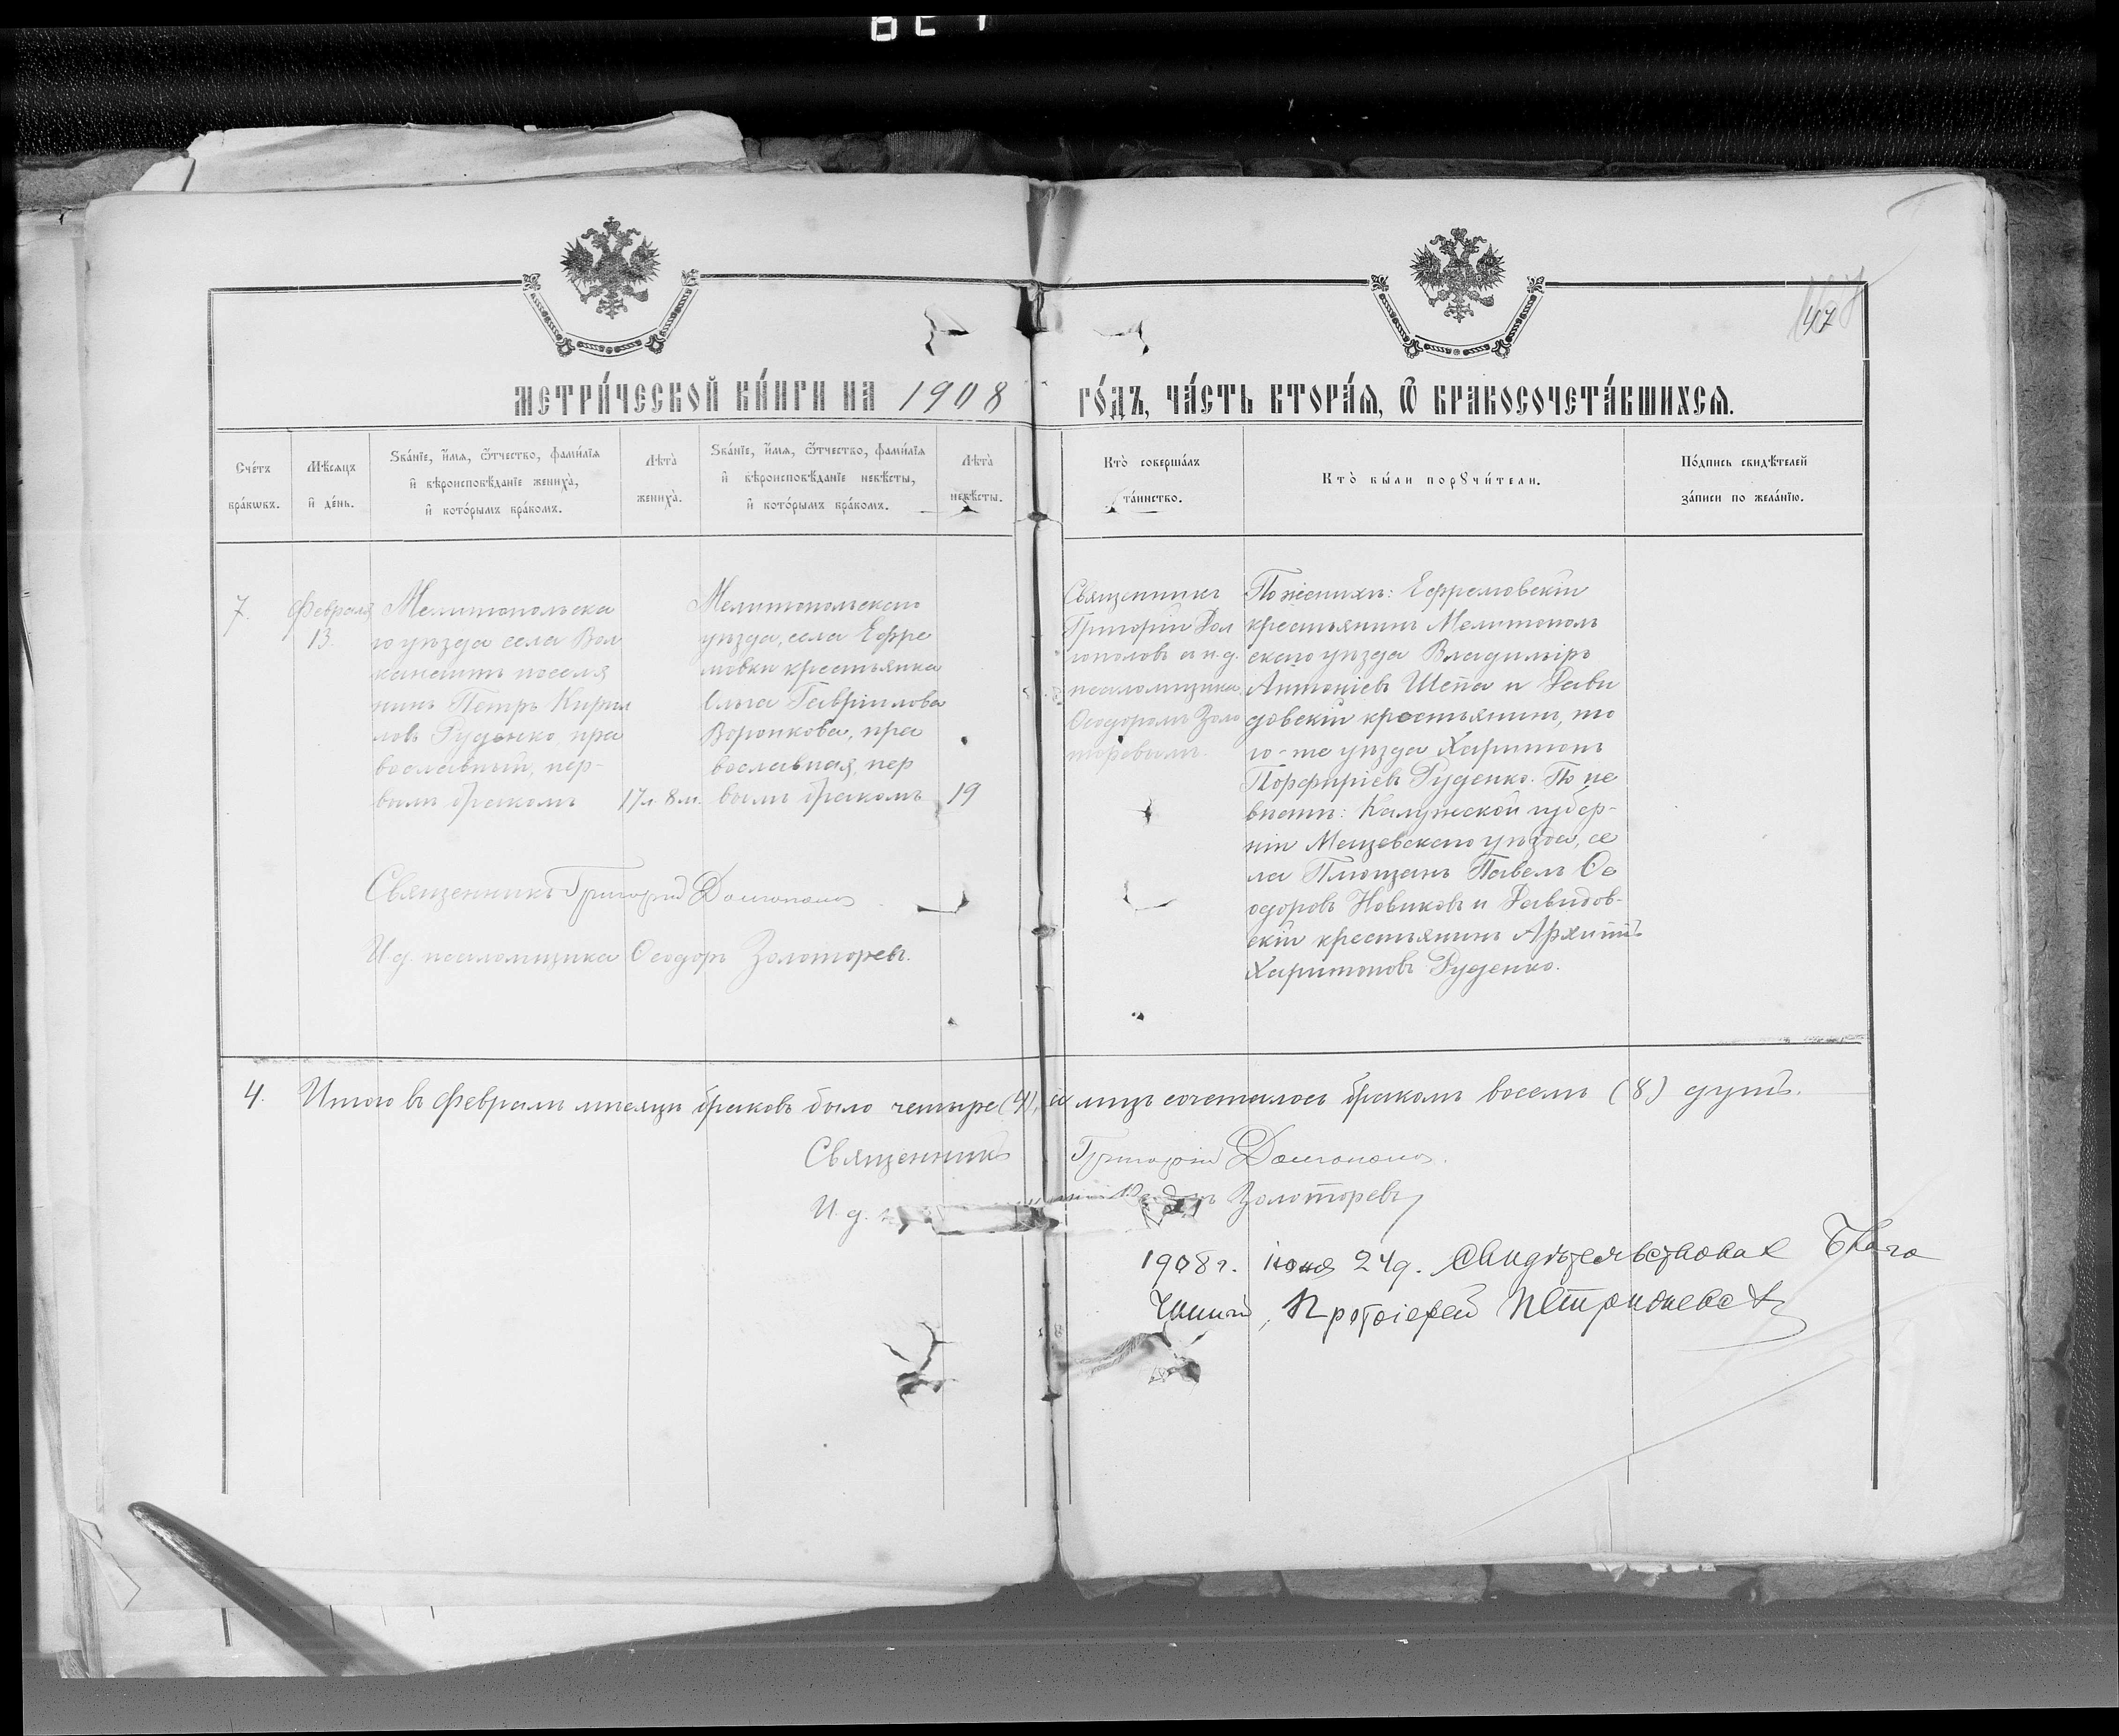 47
МЕТРИ́ЧЕСКОЙ КНИ́ГИ НА 1908 ГО́ДЪ, ЧА́СТЬ ВТОРА́Я, Ѿ БРАКОСОЧЕТА́ВШИХСЯ.
Сче́тъ бра́кѡвъ.
Мѣ́сяцъ и де́нь.
Ѕва́нїе, и́мя, ѻ҆́тчество, фами́лїя
и вѣроисповѣ́данїе жениха̀,
и кото́рымъ бра́комъ.
Лѣта̀ жениха̀.
Ѕва́нїе, и́мя, ѻ҆́тчество, фами́лїя
и вѣроисповѣ́данїе невѣ́сты,
и кото́рымъ бра́комъ.
Лѣта̀ невѣ́сты.
Кто̀ соверша́лъ
та́инство.
Кто̀ бы́ли порꙋчи́тели.
По́дпись свидѣ́телей
за́писи по жела́нїю.
7.
Февраля
13.
Мелитопольска
го уѣзда села Вол
канешты поселя
нинъ Петръ Кирил
ловъ Руденко, пра
вославный, пер-
вымъ бракомъ
17 л. 8 м.
Мелитопольскаго
уѣзда, села Ефре
мовки крестьянка
Ольга Гавріилова
Воронкова, пра
вославная, пер
вымъ бракомъ
19
Священникъ
Григорій Дол
гополовъ с и.д.
псаломщика
Ѳеодоромъ Золо
торевымъ.
По женихѣ: Ефремовскій
крестьянинъ Мелитополь
скаго уѣзда Владиміръ
Антоніевъ Шепа и Дави
довскій крестьянинъ, то
го-же уѣзда Харитонъ
Порфиріевъ Руденко. По не
вѣстѣ: Калужской губер-
ніи Мещевскаго уѣзда, се
ла Плющанъ Павелъ Ѳе
одоровъ Новиковъ и Давидов-
скій крестьянинъ Архипъ
Харитоновъ Руденко.
Священникъ Григорій Долгополовъ
И.д. псаломщика Ѳеодоръ Золоторевъ.
4. Итого въ Февралѣ мѣсяцѣ браковъ было четыре (4), а лицъ сочеталось бракомъ восемь (8) душъ.
Священникъ Григорій Долгополовъ.
И. д. Золоторевъ
1908 г. іюня 24 д. Свидѣтельствовалъ Благо
чинный, Протоіерей